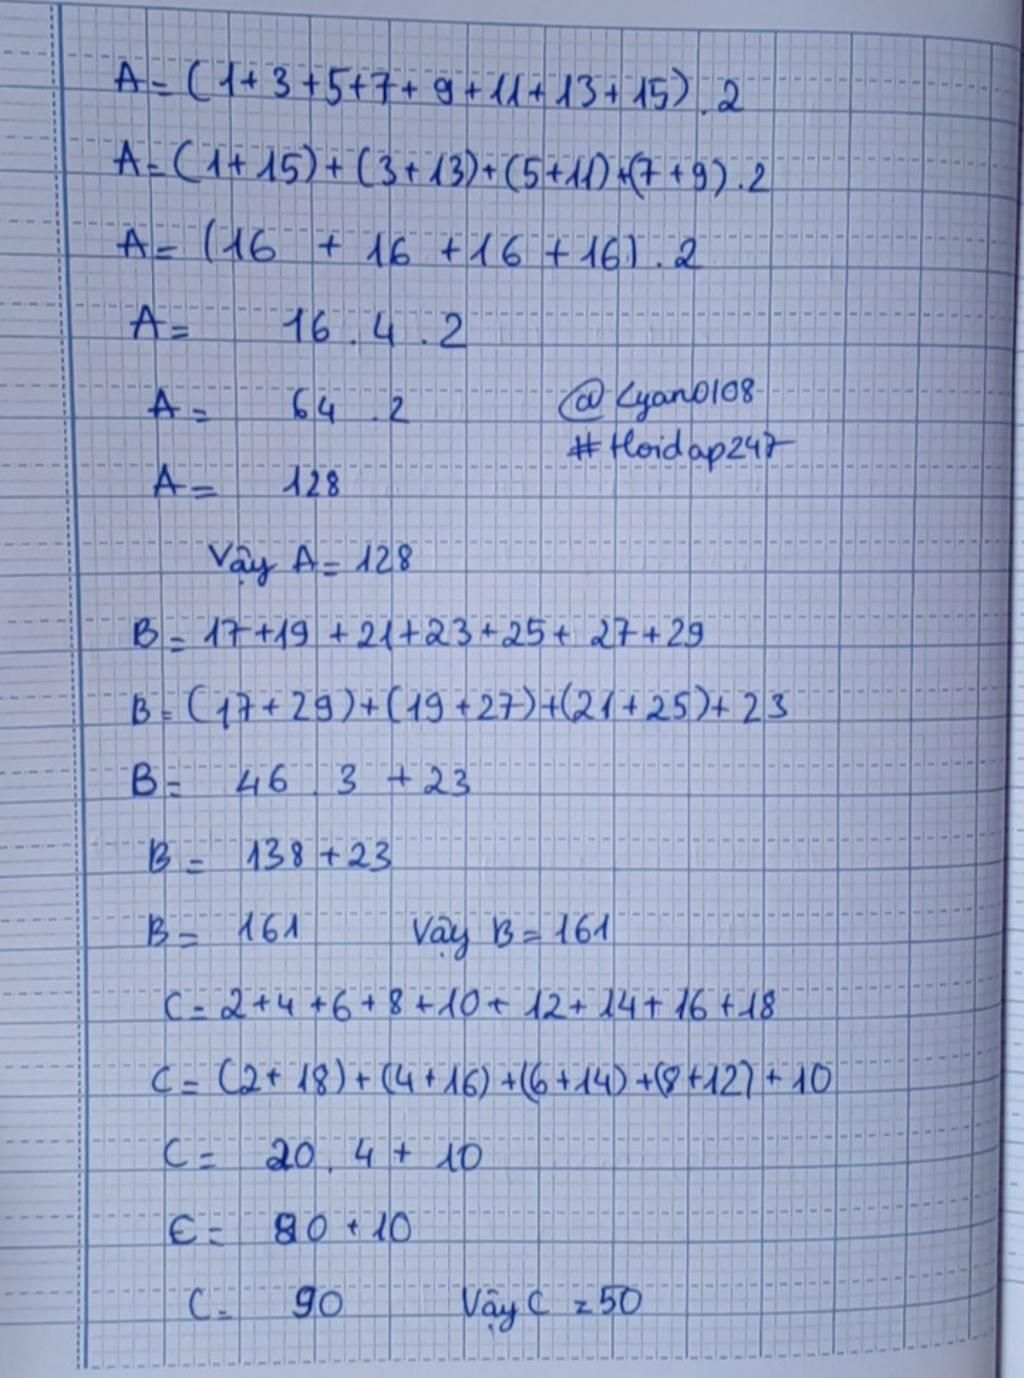 A = (1+3+5+7+9+11+13+15).2
A = (1+15)+(3+13)+(5+11)+(7+9).2
A = (16 + 16 + 16 + 16).2
A = 16.4.2
A = 64.2
@Lyan0108
#Hoidap247
A = 128
Vậy A = 128
B = 17+19+21+23+25+27+29
B = (17+29)+(19+27)+(21+25)+23
B = 46.3 + 23
B = 138+23
B = 161 Vậy B = 161
C = 2+4+6+8+10+12+14+16+18
C = (2+18)+(4+16)+(6+14)+(8+12)+10
C = 20.4 + 10
C = 80 + 10
C = 90 Vậy C = 50